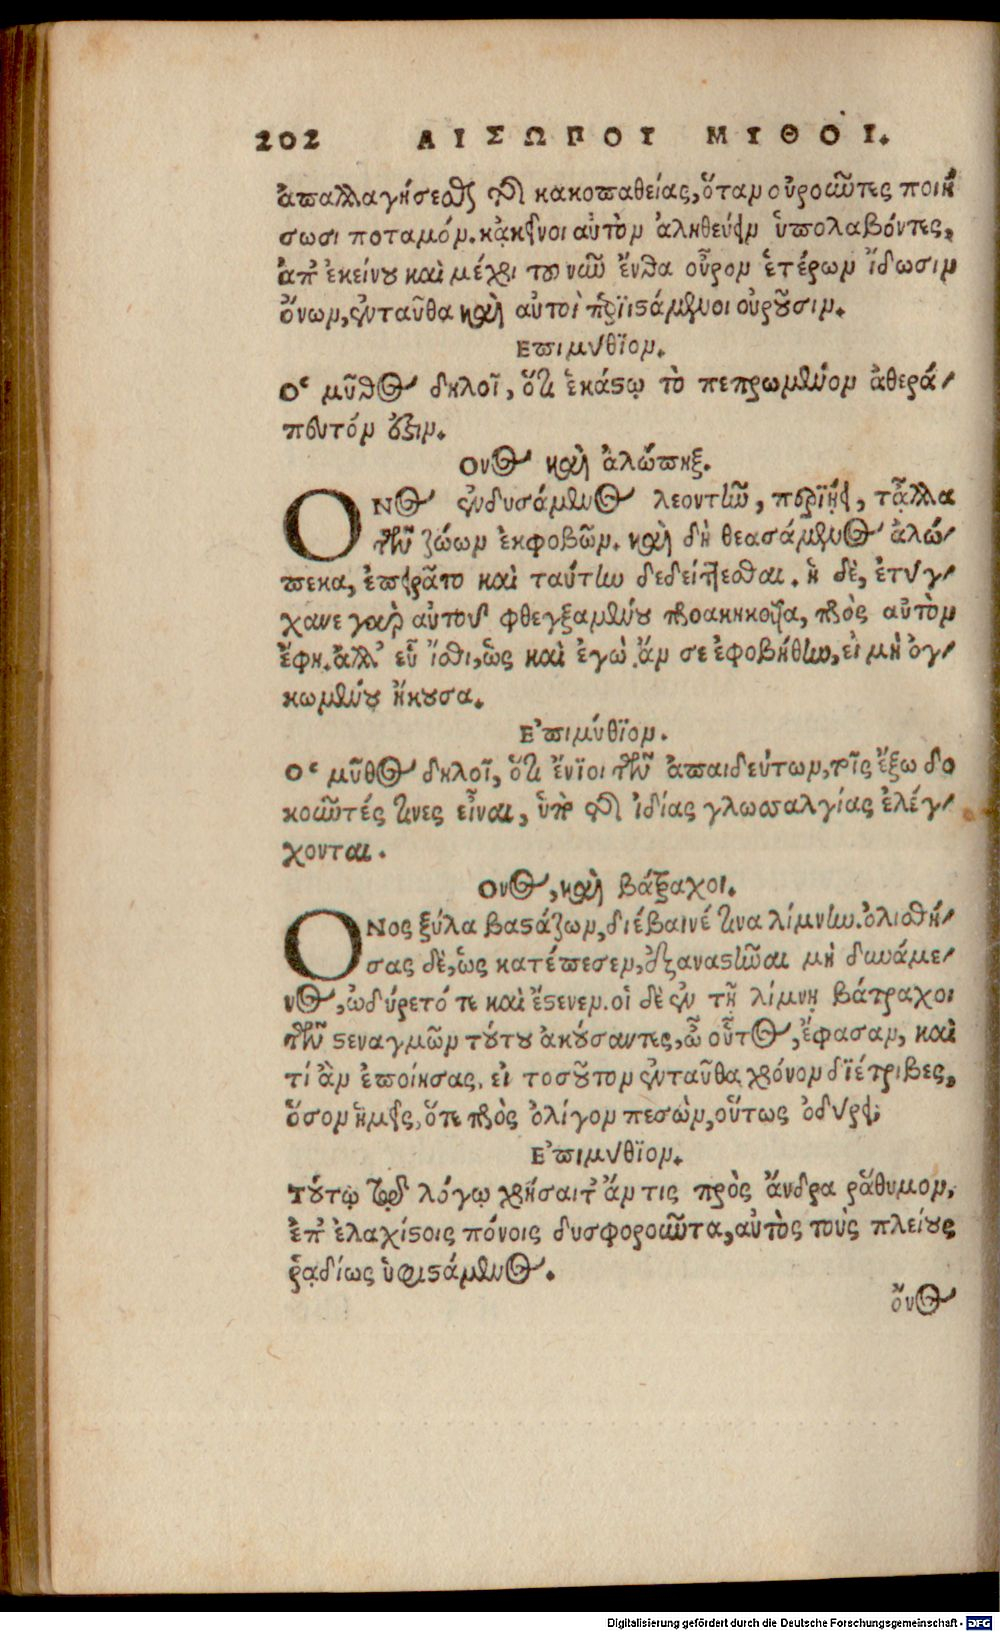 202 ΑΙΣΩΠΟΥ ΜΥΘΟΙ.
ἀπαλλαγήσεσθαι τῆς κακοπαθείας, ὅταν οὐροῦντες ποιή
σωσι ποταμόν. κᾀκεῖνοι αὐτὸν ἀληθεύειν ὑπολαβόντες,
ἀπ' ἐκείνου καὶ μέχρι τοῦ νῦν ἔνθα οὖρον ἑτέρων ἴδωσιν
ὄνων, ἐνταῦθα καὶ αὐτοὶ περιϊστάμενοι οὐροῦσιν.
Επιμύθϊον.
Ο῾ μῦθος δηλοῖ, ὅτι ἑκάστῳ τὸ πεπρωμένον ἀθερά-
πευτόν ἐστιν.
Ονος καὶ ἀλώπηξ.
ΟΝος ἐνδυσάμενος λεοντῆν, περιῄει, τἆλλα
τῶν ζώων ἐκφοβῶν. καὶ δὴ θεασάμενος ἀλώ-
πεκα, ἐπειρᾶτο καὶ ταύτην δεδείττεσθαι. ἡ δὲ, ἐτύγ-
χανε γὰρ αὐτοῦ φθεγξαμένου προακηκουῖα, πρὸς αὐτὸν
ἔφη. ἀλλ' εὖ ἴσθι, ὡς καὶ ἐγὼ ἄν σε ἐφοβήθην, εἰ μὴ ὀγ-
κωμένου ἤκουσα.
Ε᾿πιμύθϊον.
Ο῾ μῦθος δηλοῖ, ὅτι ἔνϊοι τῶν ἀπαιδεύτων, τοῖς ἔξω δο
κοῦντές τινες εἶναι, ὑπὸ τῆς ἰδίας γλωσσαλγίας ἐλέγ-
χονται.
Ονος, καὶ βάτραχοι.
ΟΝος ξύλα βαστάζων, διέβαινέ τινα λίμνην. ὀλισθή-
σας δὲ, ὡς κατέπεσεν, ἐξαναστῆναι μὴ δυνάμε-
νος, ὠδύρετό τε καὶ ἔστενεν. οἱ δὲ ἐν τῇ λίμνῃ βάτραχοι
τῶν στεναγμῶν τούτου ἀκούσαντες, ὦ οὗτος, ἔφασαν, καὶ
τί ἂν ἐποίησας, εἰ τοσοῦτον ἐνταῦθα χρόνον δϊέτριβες,
ὅσον ἡμεῖς, ὅτε πρὸς ὀλίγον πεσὼν, οὕτως ὀδύρει;
Ε᾿πιμύθϊον.
τούτῳ τῷ λόγῳ χρήσαιτ' ἄν τις πρὸς ἄνδρα ῥᾴθυμον,
ἐπ' ἐλαχίστοις πόνοις δυσφοροῦντα, αὐτὸς τοὺς πλείους
ῥᾳδίως ὑφιστάμενος.
ὄνος
Digitalisierung gefördert durch die Deutsche Forschungsgemeinschaft - DFG